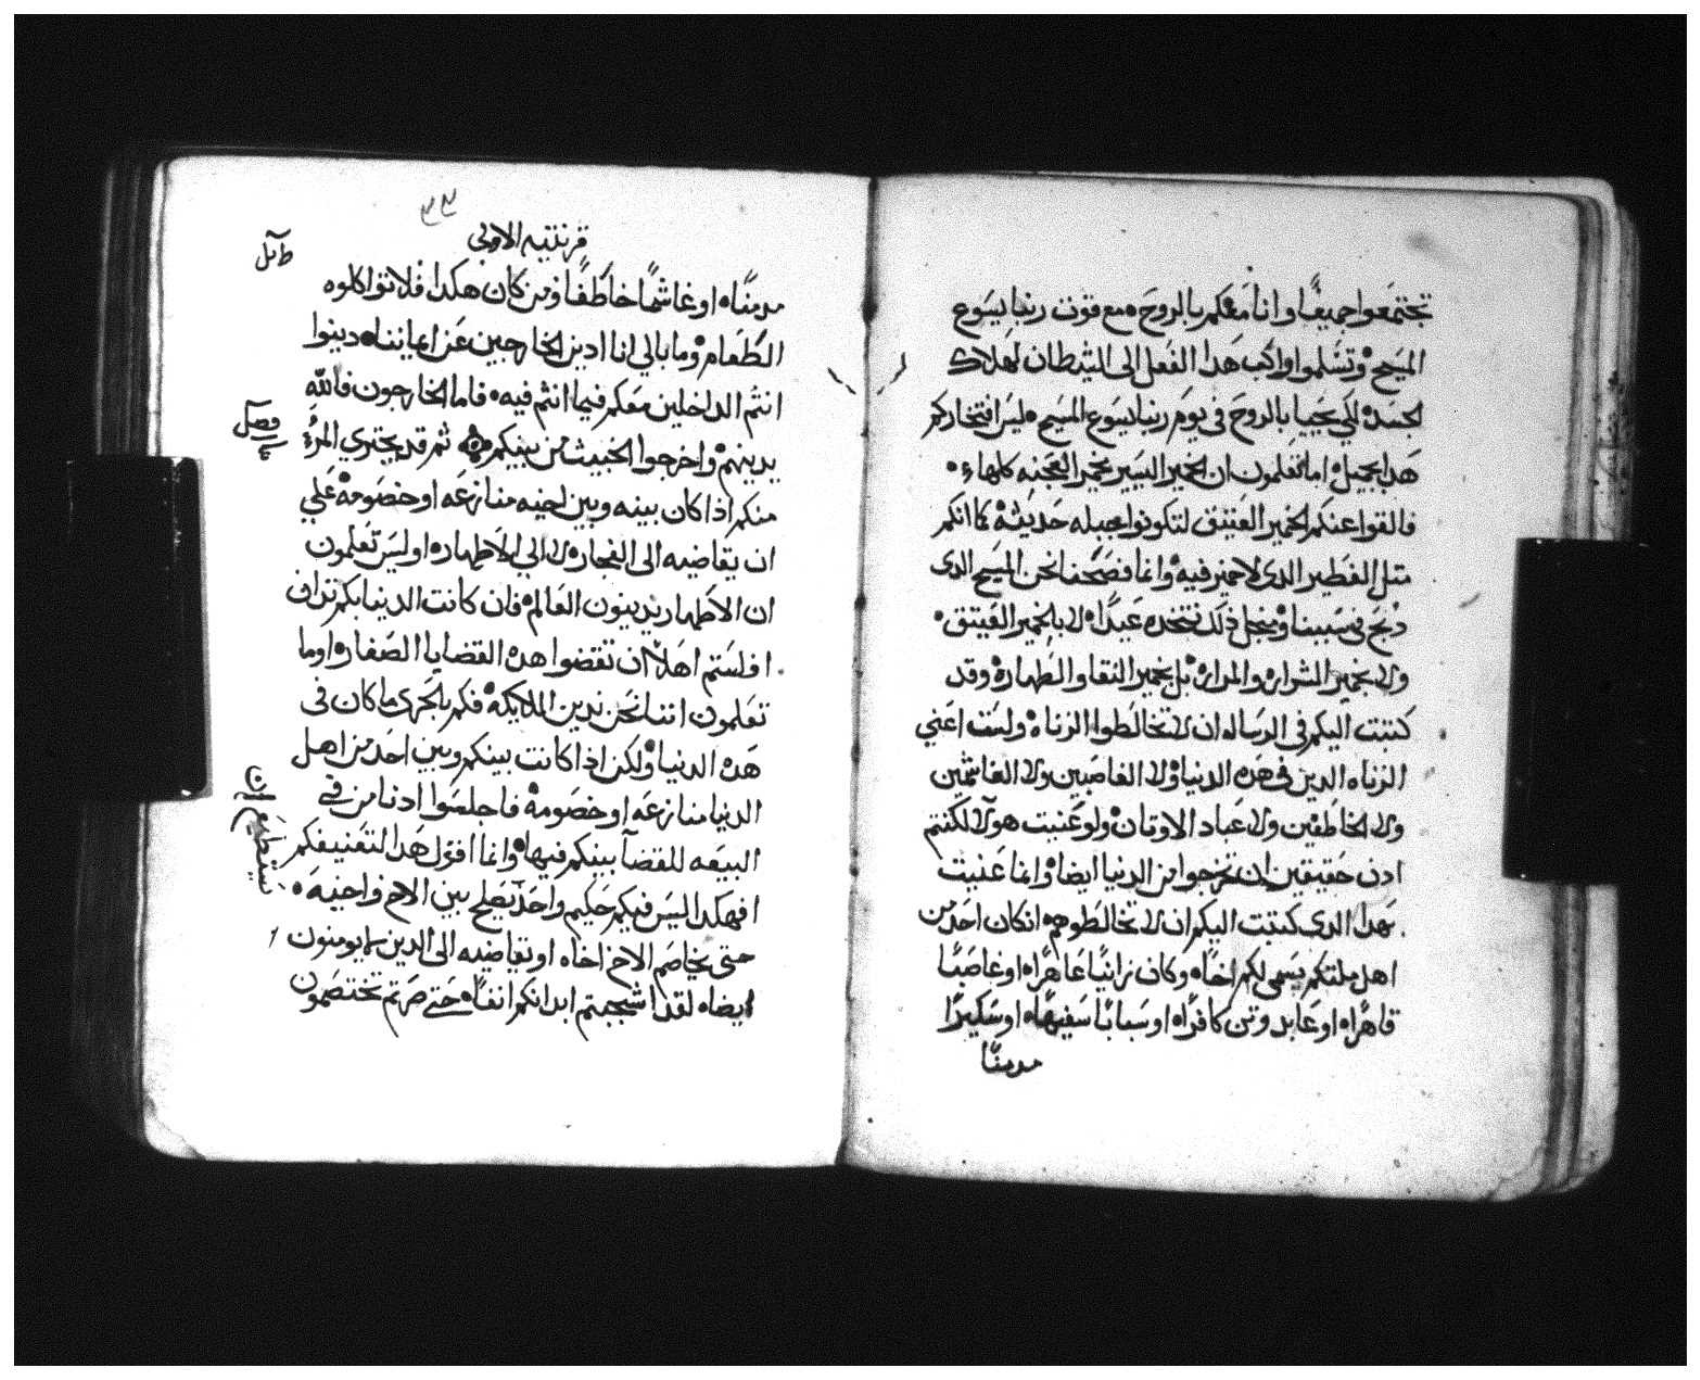 تجتمعوا جميعًا وانا معكم بالروح ه مع قوت ربنا يسوع
المسيح ه وتسلموا واكب هدا الفعل الى الشيطان لهلاك
لجسده لكي يحيا بالروح في يوم ربنا يسوع المسيح ه ليس افتخاركم
هدا بجميل ه اما تعلمون ان الخمير اليسير يخمر العجنه كلها ه
فالقوا عنكم الخمير العتيق لتكونوا جبله حديثه ه كما انكم
متل الفطير الدي لا خمير فيه ه وانما فصحنا نحن المسيح الدي
دبح في سببنا ه ومنجل ذلك نتخده عيدًا ه لا بالخمير العتيق ه
ولا بخمير الشراره والمراره ه بل بخمير النقا والطهاره ه وقد
كتبت اليكم في الرساله ان لا تخالطوا الزناه ه ولست اعني
الزناه الدين في هده الدنيا ه ولا الغاصبين ولا الغاشمين
ولا الخاطفين ولا عباد الاوتان ه ولو عنيت هولآ لكنتم
ادن حقيقين ان تخرجوا من الدنيا ايضا ه وانما عنيت
بهدا الدي كتبت اليكم ان لا تخالطوهم ه انكان احد من
اهل ملتكم يسمى لكم اخًا ه وكان زانيًا عاهرًا ه او غاصبًا
قاهرًا ه او عابد وتن كافرًا ه او سبابًا سفيهًا ه او سكيرًا
مدمنًا
٣٣
قرنتيه الاولى
مدمنًا ه او غاشمًا خاطفًا ه ومن كان هكدا فلا تواكلوه
الطعام ه وما بالي انا ادين الخارجين عن ايماننا ه دينوا
انتم الداخلين معكم فيما انتم فيه ه فاما الخارجون فالله
فصل
يدينهم ه واخرجوا الخبيث من بينكم ه ثم قد يجتري المرء
منكم اذا كان بينه وبين اخيه منازعه او خصومه ه على
ان يقاضيه الى الفجار ه لا الى الاطهار ه اوليس تعلمون
ان الاطهار يدينون العالم ه فان كانت الدنيا بكم تدان
افلستم اهلا ان تقضوا هده القضايا الصغار ه اوما
تعلمون اننا نحن ندين الملايكه ه فكم بالحرى ما كان في
هده الدنيا ه ولكن اذا كانت بينكم وبين احد من اهل
الدنيا منازعه او خصومه ه فاجلسوا ادنا من في
البيعه للقضآ بينكم فيها ه وانما اقول هدا لتعنيفكم
افهكدا ليس فيكم حكيم واحد يصلح بين الاخ واخيه ه
حتى يخاصم الاخ اخاه او يقاضيه الى الدين لا يومنون
ايضا ه لقد اشجبتم ابدانكم انفًا ه حتى صرتم تختصمون